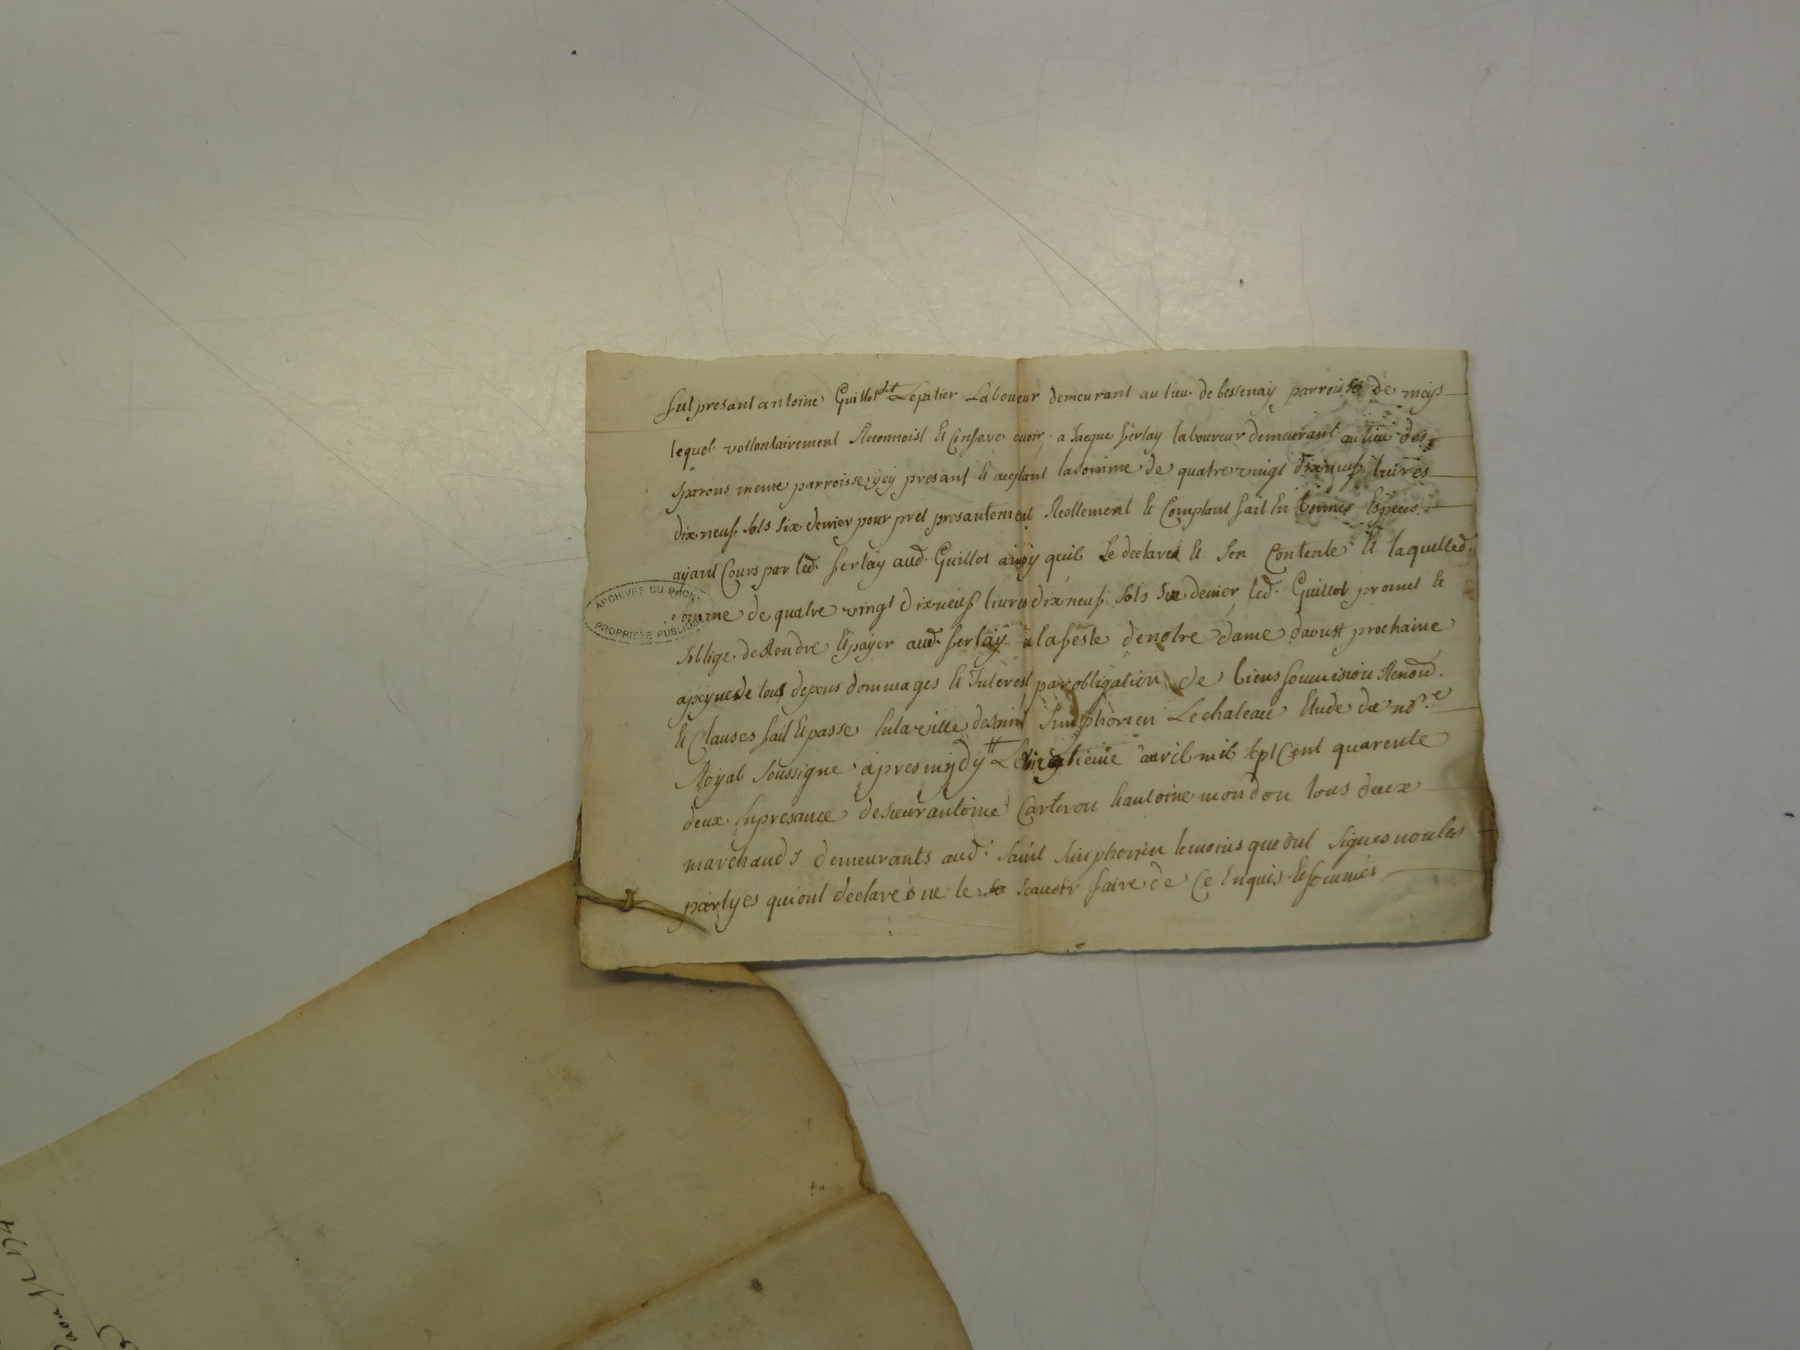 fut present antoine Guillot dit Lepitier Laboueur demeurant au lieu de bessenay parroisse de meys
lequel vollontairement Reconnoist et Confesse avoir a Jacque ferlay laboureur demeurant au lieu des
sparous meme parroisse jcy present et aceptant la somme de quatre vingt dix neuf livres
dix neuf sols six denier pour pret presantement Reellement et Comptant fait En bonnes Espèces
ayant Cours par led. ferlay aud. Guillot ainsy quil Le declare et sen Contente et laquelled.
somme de quatre vingt dix neuf livres dix neuf sols six denier led. Guillot promet et
soblige de Rendre Et payer aud. ferlay a la feste de notre dame daoust prochaine
a peyne de tous depens dommages et Interest par obligation de biens soumision Renond.
et Clauses fait Et passe En la ville de saint Simphorien Le chateau Etude de no.re
Royal soussigne apres mydy Le vingtieme avril mil sept Cent quarente
deux En presance de sieur antoine Carteron et antoine mondon tous deux
marchands demeurants aud. saint Simphorien temoins que ont signes non les
partyes qui ont declare ne le scavoir faire de Ce Enquis et sommés
ARCHIVES DU RHÔNE
PROPRIÉTÉ PUBLIQUE